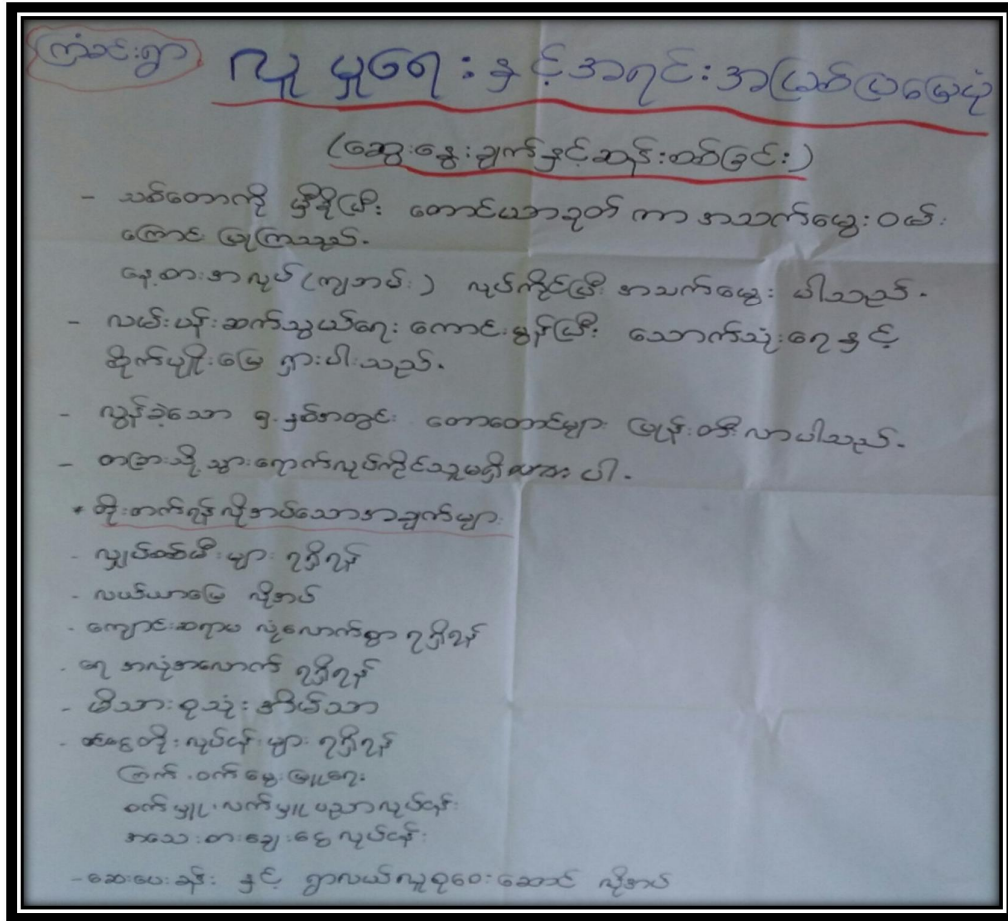 ကြံခင်းရွာ
လူမှုရေးနှင့်အရင်းအမြစ်ပြမြေပုံ
(ဆွေးနွေးချက်နှင့်ဆန်းစစ်ခြင်း)
- သစ်တောကို မှီခိုပြီး တောင်ယာခုတ် ကာ အသက်မွေးဝမ်း
ကြောင်း ပြုကြသည်.
နေ့စားအလုပ် (ကျဘမ်း) လုပ်ကိုင်ပြီး အသက်မွေး ပါသည်.
- လမ်းပန်းဆက်သွယ်ရေး ကောင်းမွန်ပြီး သောက်သုံးရေနှင့်
စိုက်ပျိုးမြေ ရှားပါးသည်.
- လွန်ခဲ့သော ၅.နှစ်အတွင်း တောတောင်များ ပြုန်းတီးလာပါသည်.
- တခြားသို့သွားရောက်လုပ်ကိုင်သူမရှိ ပါ.
* တိုးတက်ရန်လိုအပ်သောအချက်များ
- လျှပ်စစ်မီးများ ရရှိရန်
- လယ်ယာမြေ လိုအပ်
- ကျောင်းဆရာမ လုံလောက်စွာ ရရှိရန်
- ရေ အလုံအလောက် ရရှိရန်
- မိသားစုသုံး အိမ်သာ
- ဝင်ငွေတိုးလုပ်ငန်းများ ရရှိရန်
ကြက်.ဝက်မွေးမြူရေး
စက်မှု.လက်မှုပညာလုပ်ငန်း
အသေးစားချေးငွေလုပ်ငန်း
- ဆေးပေးခန်း နှင့် ရွာလယ်လူစုဝေးဆောင် လိုအပ်